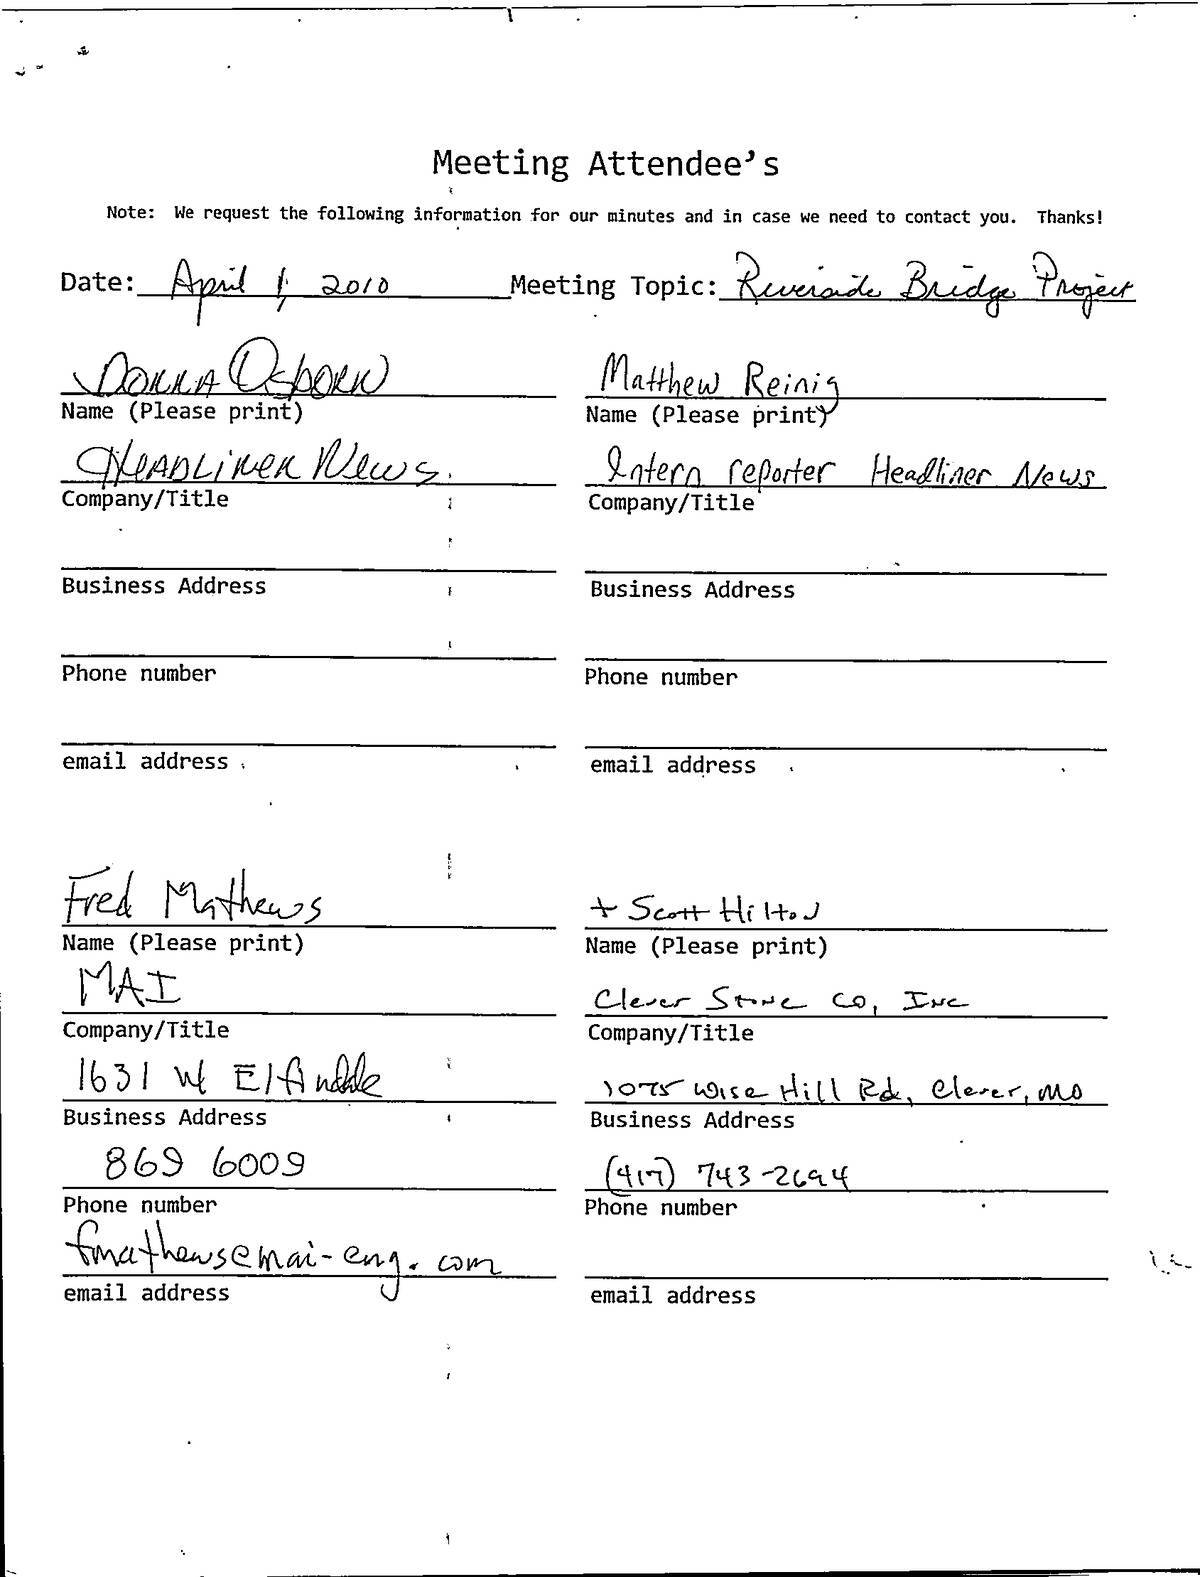 Meeting Attendee's
Note: We request the following information for our minutes and in case we need to contact you. Thanks!
Date: April 1, 2010 Meeting Topic: Riverside Bridge Project
Donna Osborn
Name (Please print)
Headliner News.
Company/Title
Business Address
Phone number
email address
Matthew Reinig
Name (Please print)
Intern reporter Headliner News
Company/Title
Business Address
Phone number
email address
Fred Mathews
Name (Please print)
MAI
Company/Title
1631 W Elfindale
Business Address
869 6009
Phone number
fmathews@mai-eng.com
email address
+ Scott Hilton
Name (Please print)
Clever Stone Co, Inc
Company/Title
1075 Wise Hill Rd, Clever, MO
Business Address
(417) 743-2694
Phone number
email address